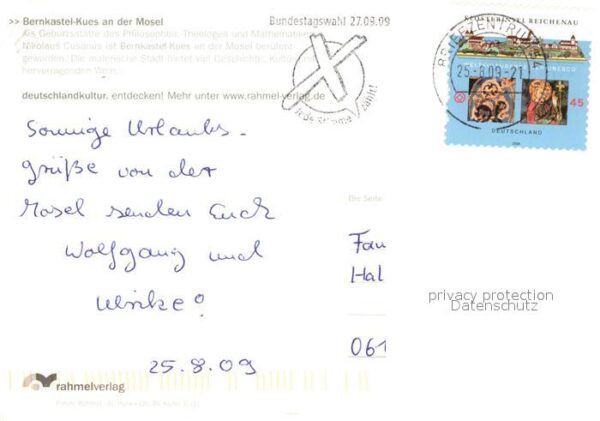 >> Bernkastel-Kues an der Mosel
Als Geburtsstätte des Philosophen, Theologen und Mathematikers
Nikolaus Cusanus ist Bernkastel-Kues an der Mosel berühmt
geworden. Die malerische Stadt bietet viel Geschichte, Kultur und
hervorragenden Wein.
deutschlandkultur. entdecken! Mehr unter www.rahmel-verlag.de
Bundestagswahl 27.09.09
Jede Stimme zählt!
BRIEFZENTRUM
25.8.09-21
KLOSTERINSEL REICHENAU
UNESCO
45
DEUTSCHLAND
Sonnige Urlaubs-
grüße von der
Mosel senden Euch
Wolfgang und
Ulrike!
25.8.09
Die Seite
Fam
Hal
061
privacy protection
Datenschutz
rahmelverlag